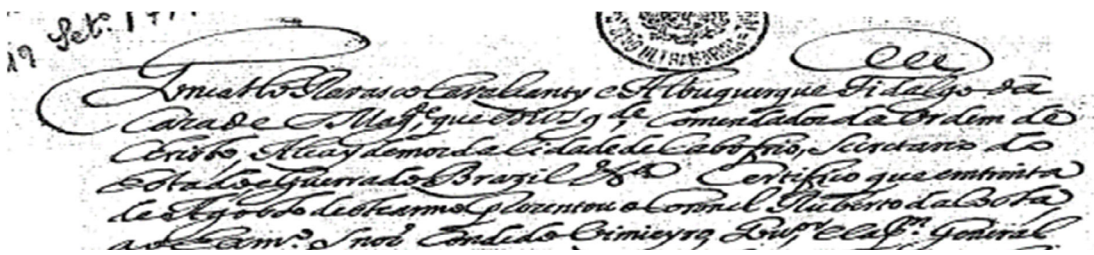 19 Set.º 171
ULTRAMARINO
Gonçallo Ravasco Cavalcanty e Albuquerque Fidalgo da
Caza de S. Mag.de que Deos g.de Comendador da Ordem de
Christo, Alcaydemor da Cidade de Cabo frio, Secretario do
Estado e Guerra do Brazil &.ra Certifico que em trinta
de Agosto deste anno prezentou o Coronel da Costa
ao Ex.mo Snor Conde do Vimieyro, Gov.or e Cap.m General